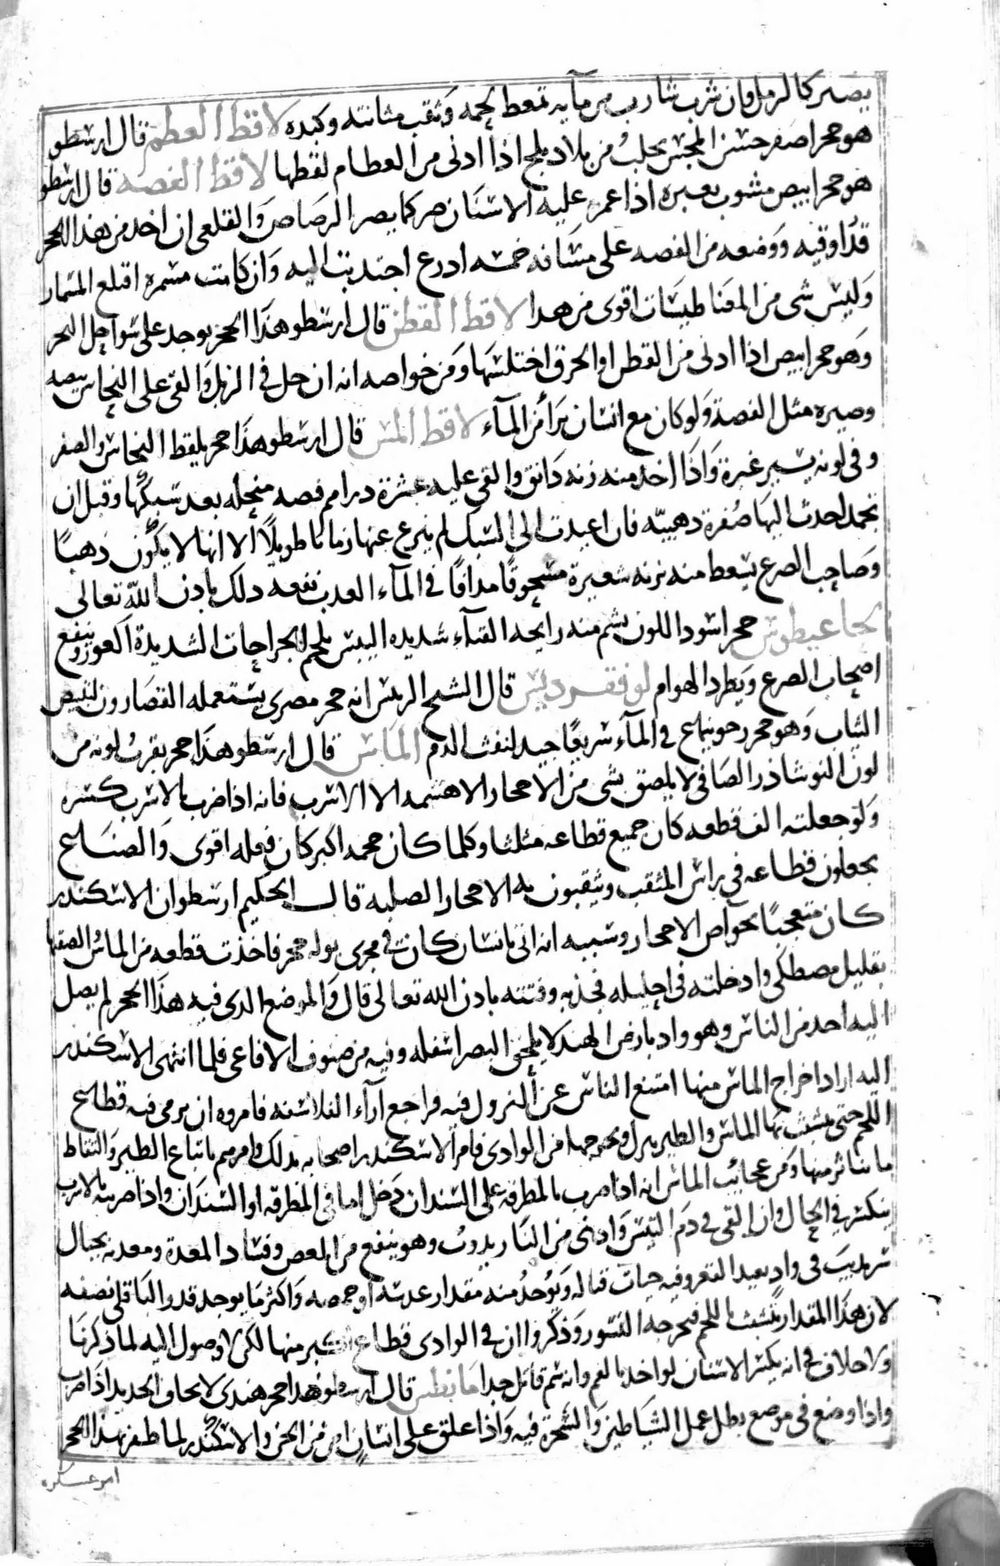 يصير كالرمل وان شرب شارب من مايه تمعط لحمه وثقب مثانته وكبده لاقط العظم قال ارسطو
هو حجر اصفر خشن المجس يجلب من بلاد بلخ اذا ادنى من العظام لقطها لاقط الفضه قال ارسطو
هو حجر ابيض مشوب بغبره اذا غمر عليه الاسنان صر كما يصر الرصاص والقلعى ان اخذ من هذا الحجر
قدر اوقيه ووضعه من الفضه على مسافة خمسه اذرع اجتذبت اليه وان كانت مسمره اقتلع المسمار
وليس شى من المغناطيسات اقوى من هذا لاقط القطن قال ارسطو هذا الحجر يوجد على سواحل البحر
وهو حجر ابيض اذا ادنى من القطن او الخرق اختلسها ومن خواصه انه ان حل فى الزبل والقى على النحاس بيضه
وصيره مثل الفضة ولو كان مع انسان برأ من المآء لاقط المس قال ارسطو هذا حجر يلقط النحاس والصفر
وفى لونه يسير غبرة واذا اخذ منه زنه دانق والقى عليه عشرة دراهم فضه منحله بعد سبكها وقبل ان
تجمد احدث اليها صفرة ذهبيه فان اعيدت الى السبك لم ينزع عنها زمانا طويلا الا انها لا يكون ذهبا
وصاحب الصرع يسعط منه بزنه شعيرة مسحوقا مدافا فى المآء العذب نفعه ذلك باذن الله تعالى
حجر اسود اللون يشم منه رايحه القثاء شديده اليبس يلحم الجراحات الشديدة الغور وينفع
اصحاب الصرع ويطرد الهوام لوفقرديس قال الشيخ الريس انه حجر مصرى يستعمله القصارون لتبيض
الثياب وهو حجر رخو ينماع فى المآء سريعا جيد لنفث الدم الماس قال ارسطو هذا حجر يقرب لونه من
لون النوشاذر الصافى لا يلصق بشى من الاحجار الا هشمه الا الاسرب فانه اذا ضرب بالاسرب كسره
ولو جعلته الف قطعه كان جميع قطاعه مثلثا وكلما كان حجمه اكبر كان فعله اقوى والصناع
يجعلون قطاعه فى راس المثقب ويثقبون به الاحجار الصلبه قال الحكيم ارسطو ان الاسكندر
كان متعجبا بخواص الاحجار وسببه انه اتى بانسان كان فى مجرى بوله حجر فاخذت قطعه من الماس الصقها
بقليل مصطكى وادخلته فى احليله فجذبه وفتته باذن الله تعالى قال والموضع الذى فيه هذا الحجر لم يصل
اليه احد من الناس وهو واد بارض الهند لا يلحق البصر اسفله وفيه من صنوف الافاعى فلما انتهى الاسكندر
اليه اراد اخراج الماس منها امتنع الناس عن النزول فيه فراجع آراء الفلاسفه فامروه ان يرمى فيه قطاع
اللحم حتى يتشبث بها الماس والطير ينزل ويخرجها من الوادى فامر الاسكندر اصحابه بذلك وامرهم باتباع الطير والتقاط
ما يتناثر منها ومن عجائب الماس انه اذا ضرب بالمطرقه على السندان دخل اما فى المطرقه او السندان واذا ضربته بالاسرب
ينكسر فى الحال وان القى فى دم التيس وادنى من النار يذوب وهو ينفع من المغص وفساد المعدة ومعدنه بجبال
سرنديب فى واد بعيد القعر وفيه حيات قتاله ويوخذ منه مقدار عدسه او حمصه واكثر ما يوجد قدر الباقلى نصفه
لان هذا المقدار يتشبث باللحم فيخرجه النسور وذكروا ان فى الوادى قطاع اكبر منها لكن لا وصول اليه لما ذكرنا
ولا خلاف فى انه يكسر الاسنان لو اخذ بالفم وانه سم قاتل جدا مانطس قال ارسطو هذا حجر هندى لا يحاوى الحديد اذا ضرب
واذا وضع فى موضع بطل عمل الشياطين والسحرة فيه واذا علق على انسان امن من الجن والاسكندر لما ظفر بهذا الحجر
امر عسكره